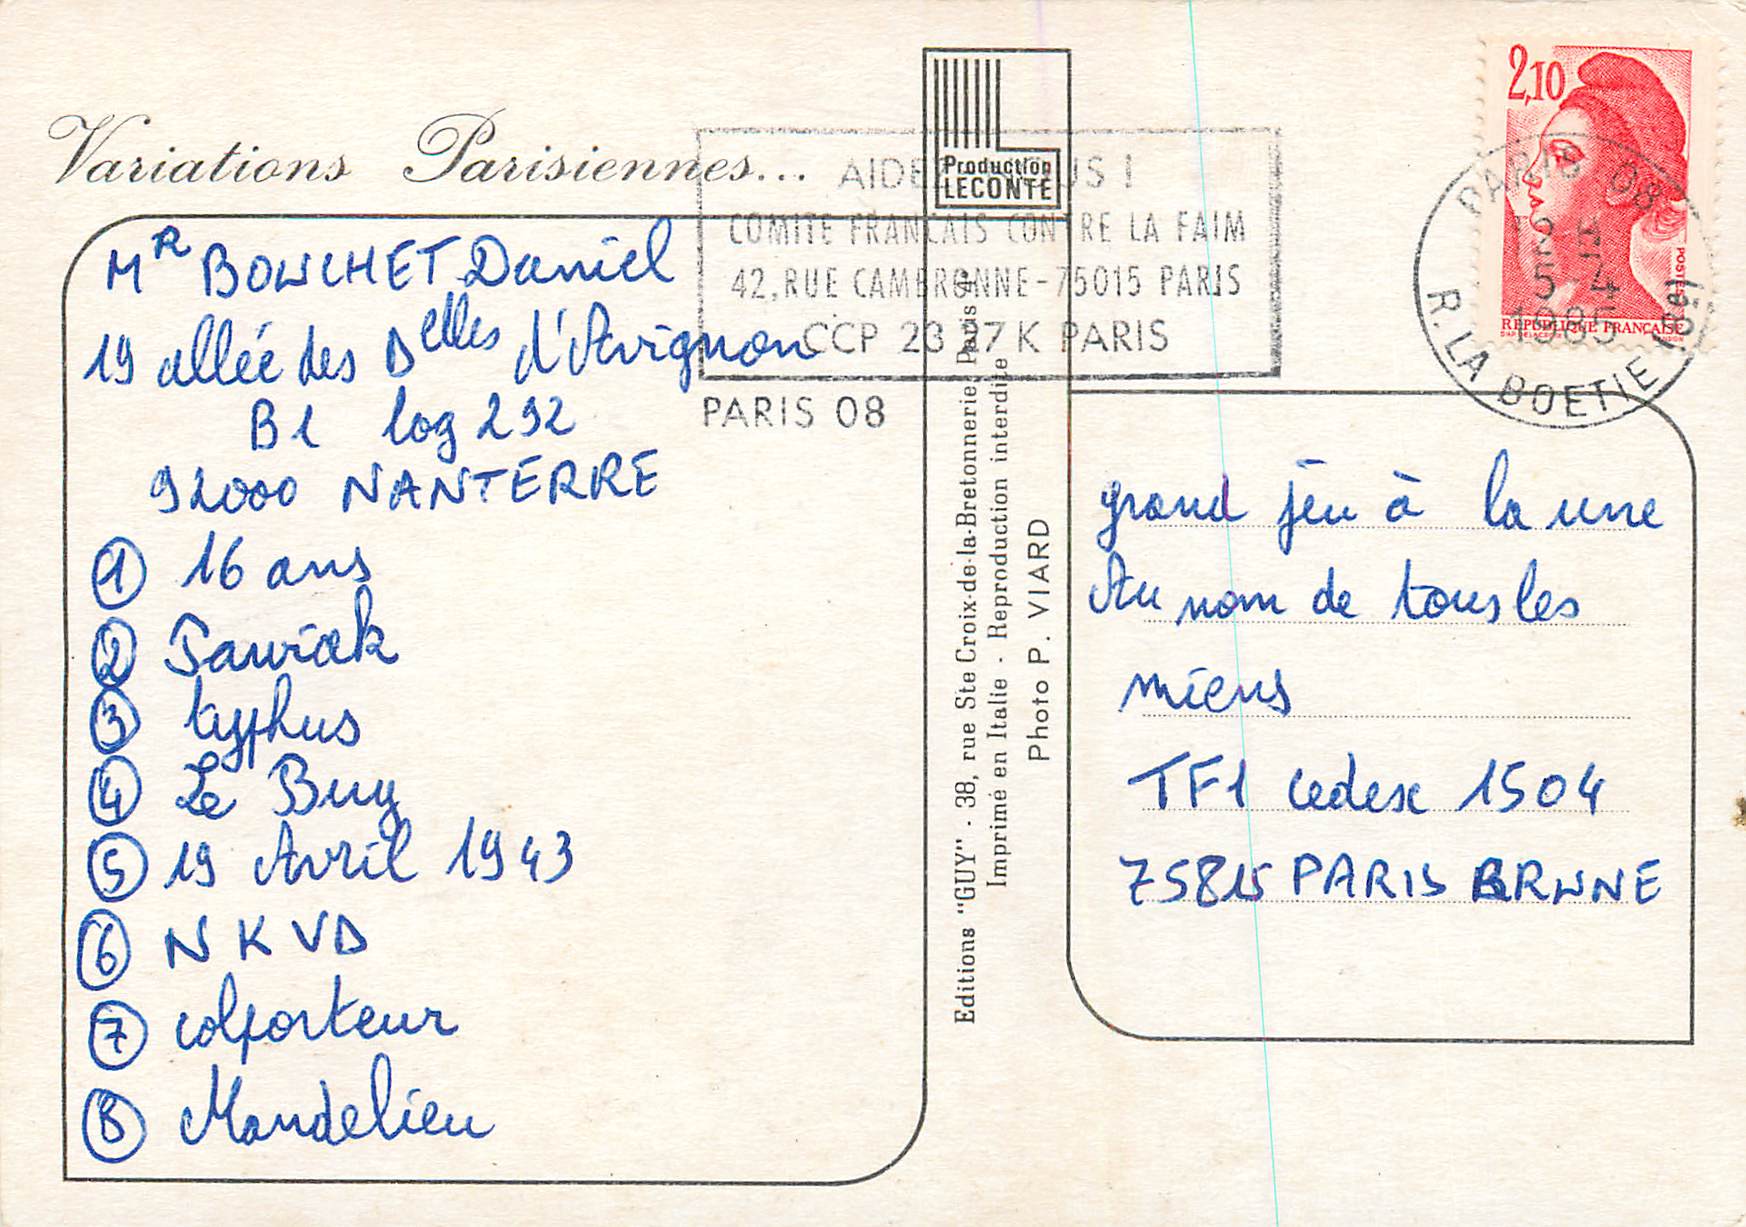 Variations Parisiennes...
Mr BOUCHET Daniel
19 allée des Delles d'Avignon
B1 log 292
92000 NANTERRE
① 16 ans
② Pawiak
③ typhus
④ Le Buy
⑤ 19 Avril 1943
⑥ NKVD
⑦ colporteur
⑧ Mandelieu
Production
LECONTE
COMITE FRANCAIS CONTRE LA FAIM
42, RUE CAMBRONNE-75015 PARIS
CCP 23 27 K PARIS
PARIS 08
Editions "GUY" - 38, rue Ste Croix-de-la-Bretonnerie, Paris
Imprimé en Italie - Reproduction interdite
Photo P. VIARD
2,10
REPUBLIQUE FRANCAISE
POSTES
PARIS 08
5-4
1985
R. LA BOETIE (8e)
grand jeu à la une
Au nom de tous les
miens
TF1 cedex 1504
75815 PARIS BRUNE